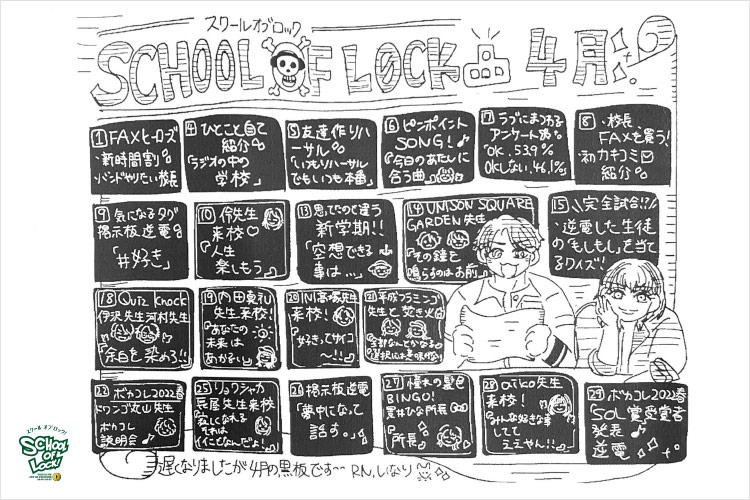 スクールオブロック
SCHOOL OF LOCK 4月!
1 FAXヒーローズ
・新時間割
・バンドやりたい校長
4 ひとこと自己
紹介
「ラジオの中の
学校」
5 友達作りリハ
ーサル
「いつもリハーサル
でもいつも本番」
6 ピンポイント
SONG!
「今日のあたしに
合う曲」
7
アンケート
OK、53.9%
OKしない、46.1%
8 ・校長、
FAXを買う!
・初カキコミ
紹介
9 気になるタグ
掲示板逆電
「#好き」
10 伶先生
来校!
「人生
楽しもう」
13 思ってたのと違う
新学期!!
「空想できる
事は…」
14 UNISON SQUARE
GARDEN先生
「その鐘を
鳴らすのはお前」
15 \完全試合!!/
逆電した生徒
の「もしもし」を当て
るクイズ!
18 Quiz knock
伊沢先生河村先生
「余白を染めろ!!」
19 内田真礼
先生来校!
「あなたの
未来は
あかるい」
20 INI高塚先生
来校!
「好きってサイコ
ー!!」
21 平成フラミンゴ
先生と焚き火
22 ボカコレ2022春
ドワンゴ丸山先生
ボカコレ
説明会
25 リョクシャカ
長屋先生来校
「寂しくなれる
それは
イイことなんだよ!」
26 掲示板逆電
「夢中になって
話す。」
27 憧れの星
BINGO!
夏井ひな所長
「所長」
28 aiko先生
来校!
「みんな好きな事
してて
ええやん!!」
29 ボカコレ2022春
SOL賞受賞者
発表
逆電
遅くなりましたが4月の黒板です〜 RN,しなり
スクール オブ ロック!
SCHOOL
OF
LOCK!